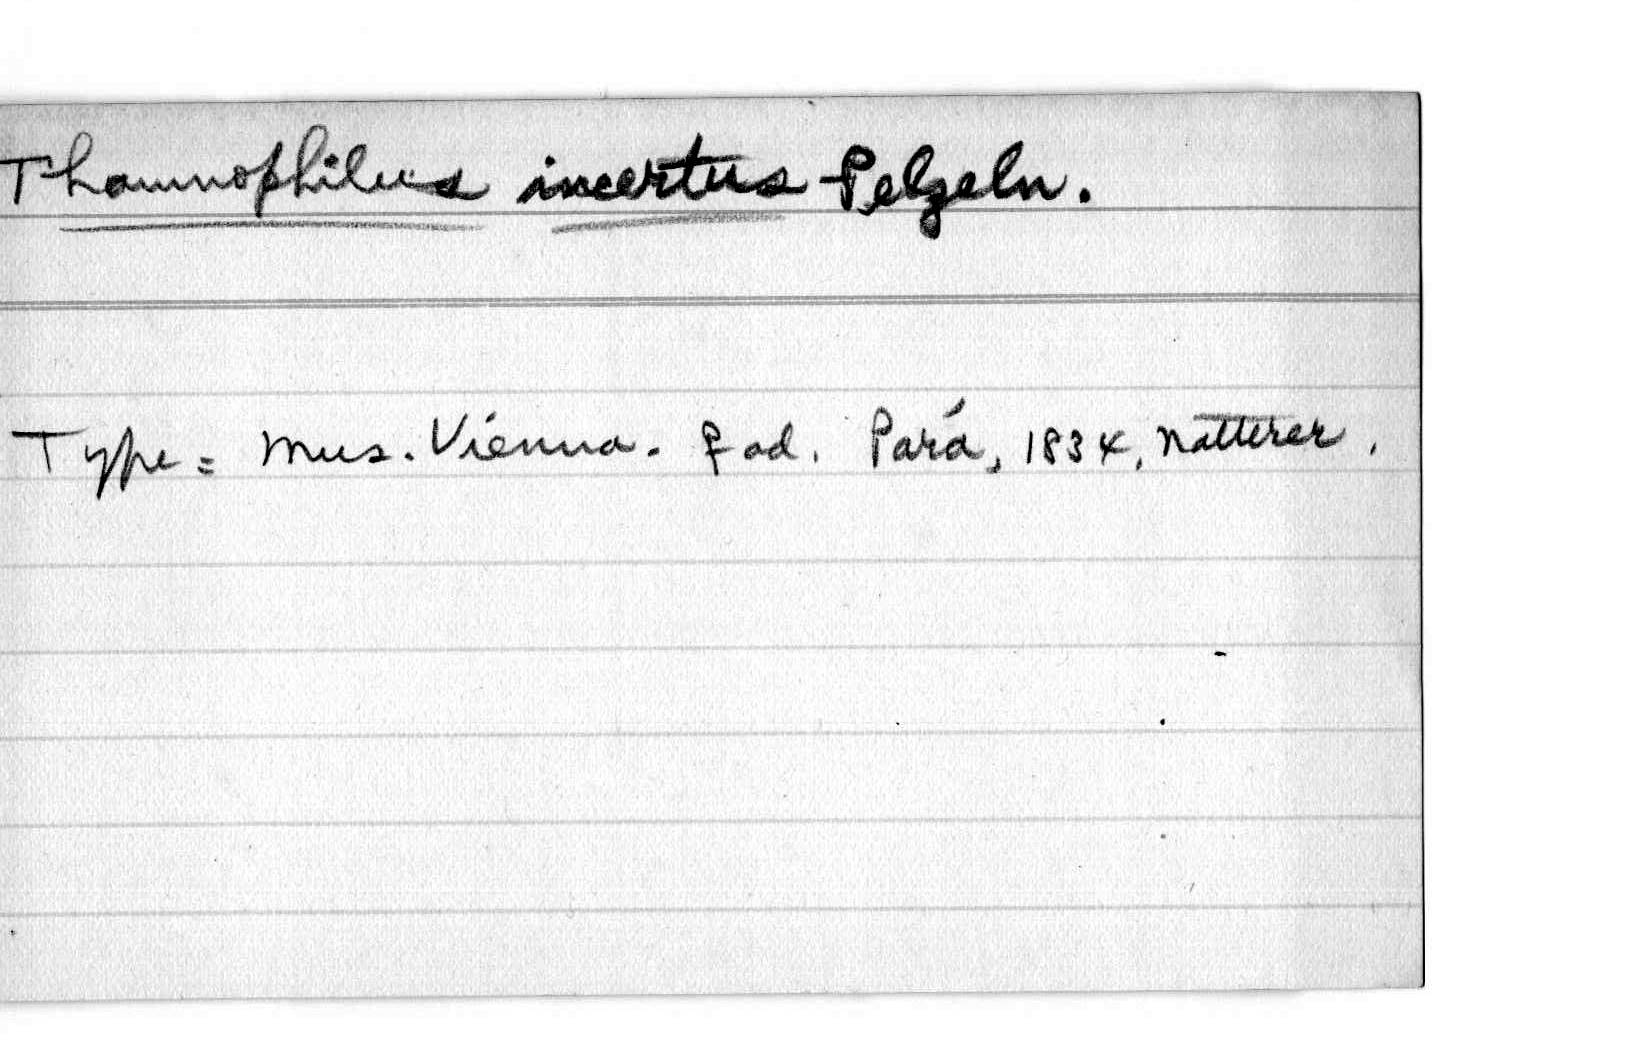 Thamnophilus incertus Pelzeln.
Type = Mus. Vienna. ♀ ad. Pará, 1834, Natterer.